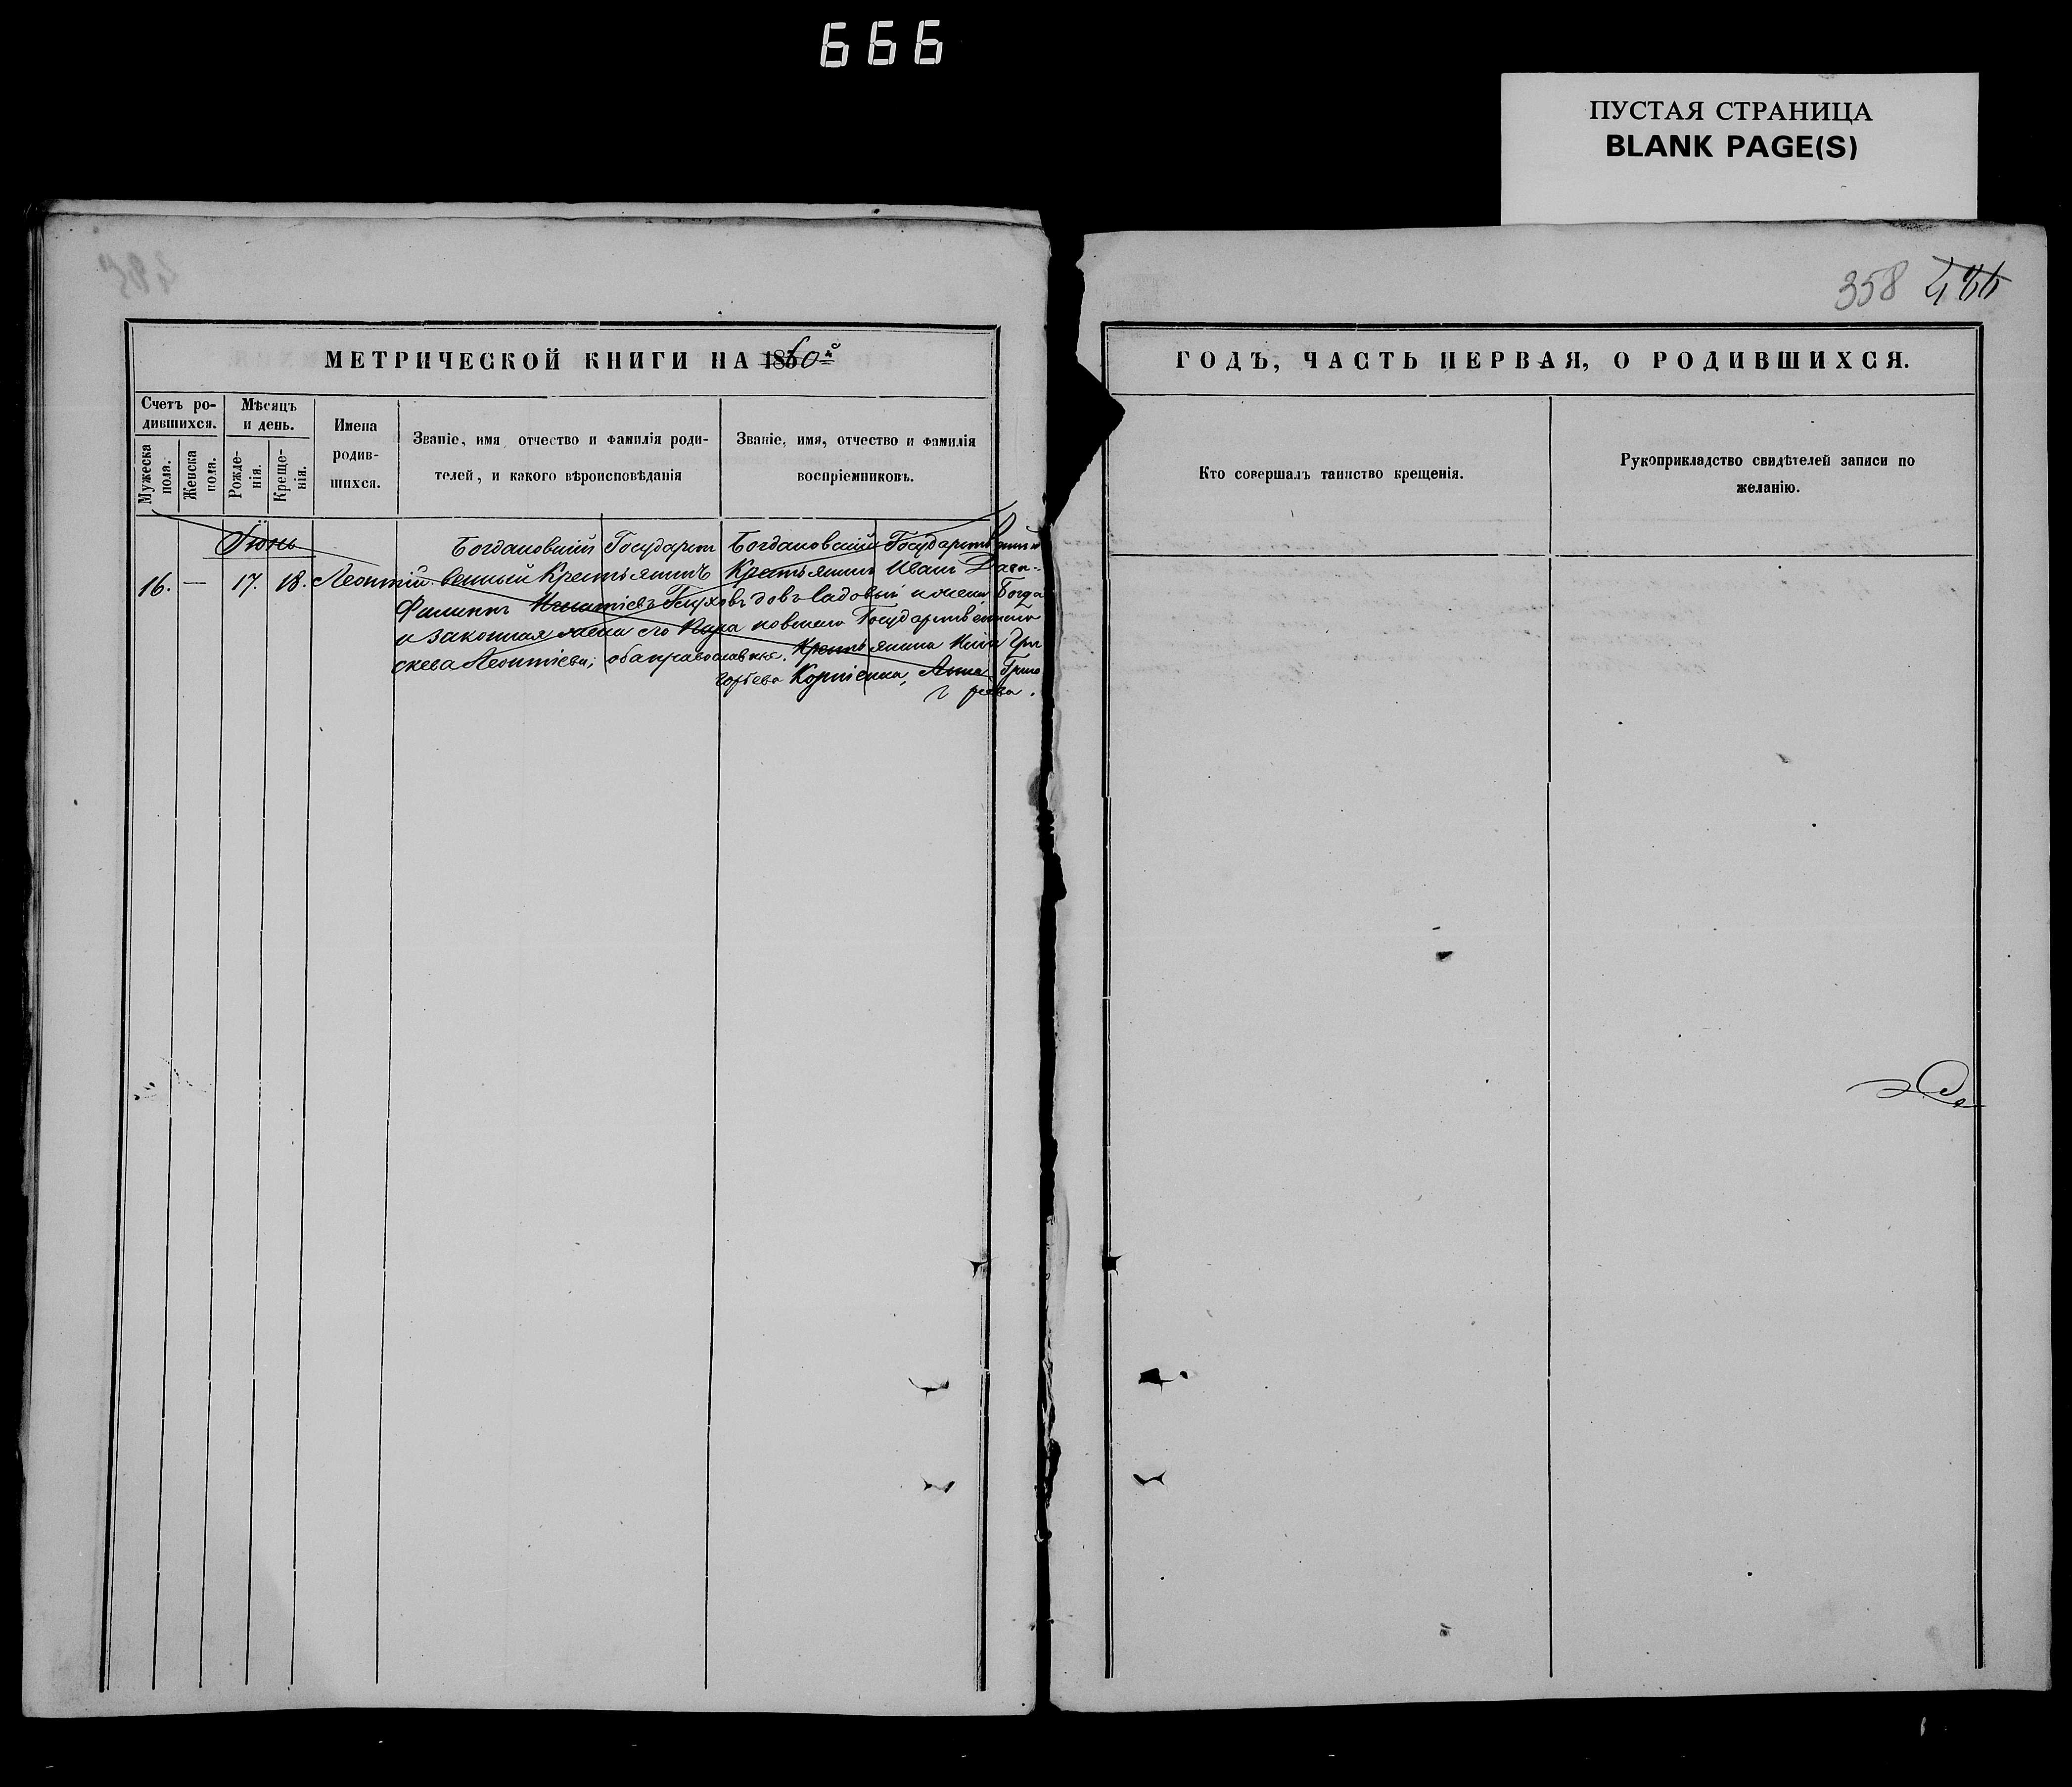 666
ПУСТАЯ СТРАНИЦА
BLANK PAGE(S)
358 466
МЕТРИЧЕСКОЙ КНИГИ НА 1860й
ГОДЪ, ЧАСТЬ ПЕРВАЯ, О РОДИВШИХСЯ.
Счетъ ро-
дившихся.
Мужеска
пола.
Женска
пола.
Мѣсяцъ
и день.
Рожде-
нія.
Креще-
нія.
Имена
родив-
шихся.
Званіе, имя отчество и фамилія роди-
телей, и какого вѣроисповѣданія
Званіе, имя, отчество и фамилія
воспріемниковъ.
Кто совершалъ таинство крещенія.
Рукоприкладство свидѣтелей записи по
желанію.
Іюнь
16. — 17. 18. Леонтій.
Богдановскій Государст
венный Крестьянинъ
Филиппъ Игнатіевъ Глуховъ
и законная жена его Пара
скева Леонтіева; оба православные.
Богдановскій Государственный
Крестьянинъ Иванъ
довъ Садовый и жена Богда
новскаго Государственнаго
Крестьянина Гри
горьева Корніенка, Анна Григо
рьева.